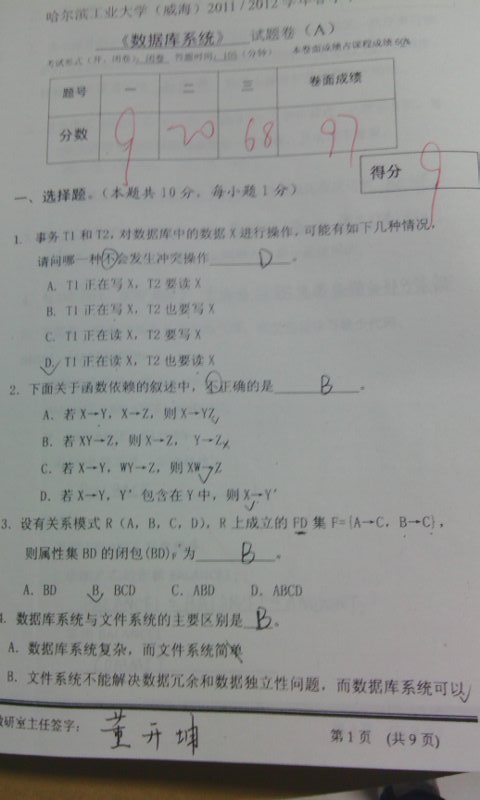 哈尔滨工业大学（威海）2011/2012 学年春季
《数据库系统》 试题卷（A）
考试形式（开、闭卷）：闭卷 答题时间：100（分钟） 本卷面成绩占课程成绩 60%
题号 一 二 三 卷面成绩
分数 9 20 68 97
得分 9
一、选择题。（本题共 10 分，每小题 1 分）
1. 事务 T1 和 T2，对数据库中的数据 X 进行操作，可能有如下几种情况，
请问哪一种不会发生冲突操作 D 。
A. T1 正在写 X，T2 要读 X
B. T1 正在写 X，T2 也要写 X
C. T1 正在读 X，T2 要写 X
D. T1 正在读 X，T2 也要读 X
2. 下面关于函数依赖的叙述中，不正确的是 B 。
A. 若 X→Y，X→Z，则 X→YZ
B. 若 XY→Z，则 X→Z， Y→Z
C. 若 X→Y，WY→Z，则 XW→Z
D. 若 X→Y，Y′包含在 Y 中，则 X→Y′
3. 设有关系模式 R（A，B，C，D），R 上成立的 FD 集 F={A→C，B→C}，
则属性集 BD 的闭包(BD)F 为 B 。
A. BD B. BCD C. ABD D. ABCD
4. 数据库系统与文件系统的主要区别是 B 。
A. 数据库系统复杂，而文件系统简单
B. 文件系统不能解决数据冗余和数据独立性问题，而数据库系统可以
教研室主任签字： 董开坤
第 1 页 （共 9 页）